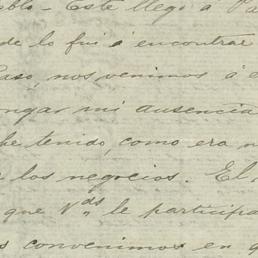 Este llegó á
de lo fuí á encontrar
nos venimos á
mi ausencia
he tenido, como era
los negocios. El
que Vds le participa
convenimos en